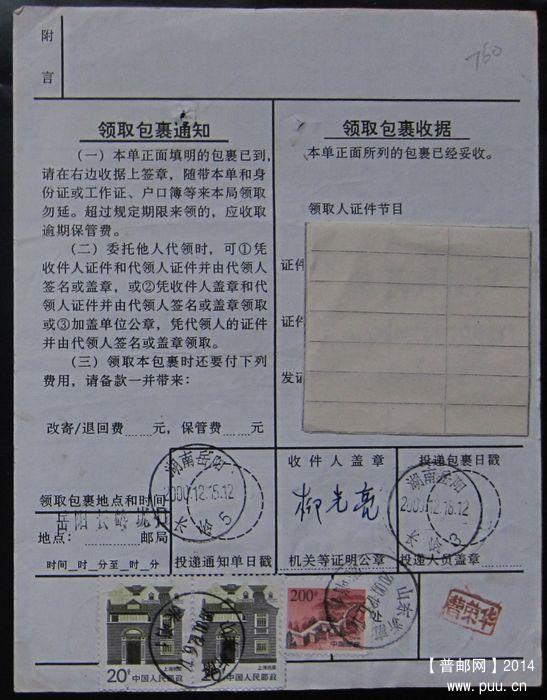 附
言
760
领取包裹通知
(一) 本单正面填明的包裹已到,
请在右边收据上签章,随带本单和身
份证或工作证、户口簿等来本局领取
勿延。超过规定期限来领的,应收取
逾期保管费。
(二) 委托他人代领时,可①凭
收件人证件和代领人证件并由代领人
签名或盖章,或②凭收件人盖章和代
领人证件并由代领人签名或盖章领取
或③加盖单位公章,凭代领人的证件
并由代领人签名或盖章领取。
(三) 领取本包裹时还要付下列
费用,请备款一并带来:
改寄/退回费......元,保管费......元
领取包裹收据
本单正面所列的包裹已经妥收。
领取人证件节目
证件
证件
发证
湖南岳阳
2000.12.15.12
5
领取包裹地点和时间
岳阳长岭
地点:......邮局
时间 时 分至 时 分
投递通知单日戳
收件人盖章
柳光亮
机关等证明公章
投递包裹日戳
湖南岳阳
2000.12.16.12
3
投递人员盖章
20分
上海民居
中国人民邮政
20分
上海民居
中国人民邮政
200分
中国邮政
山东
荣华
【普邮网】2014
www.puu.cn